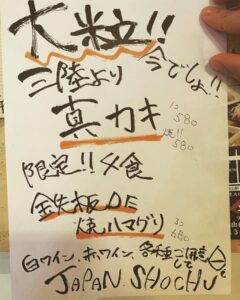 大粒!!
今でしょ!!
三陸より
真カキ
1コ 580
焼!! 580
限定!! 夕食
鉄板DE
焼ハマグリ
3コ 680
白ワイン、赤ワイン、各種ご用意して
JAPAN SHOCHU